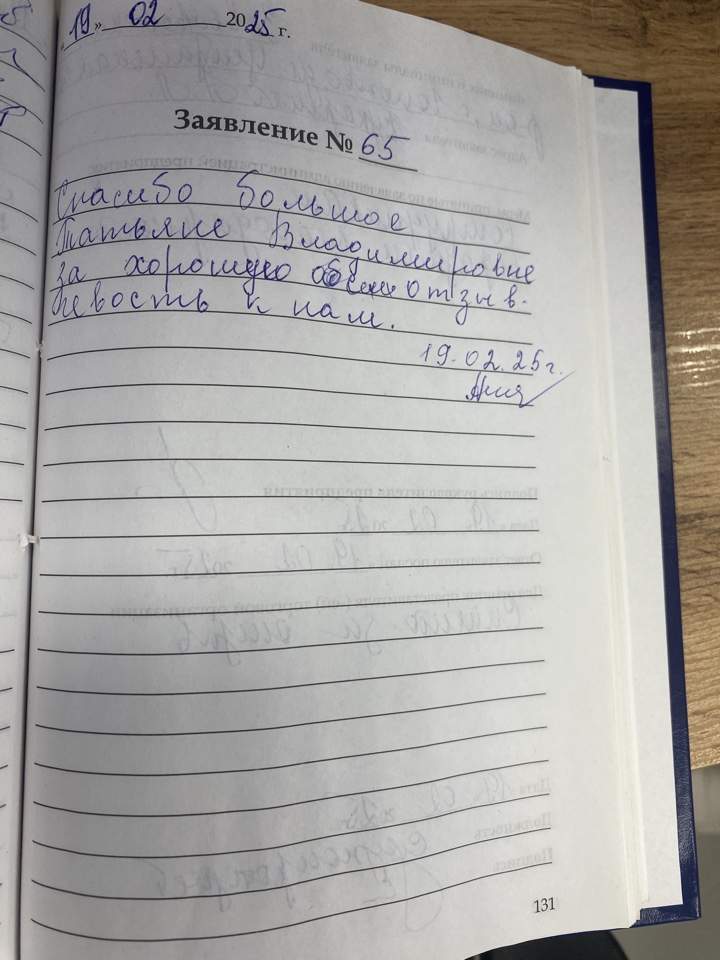 «19» 02 2025 г.
Заявление № 65
Спасибо большое
Татьяне Владимировне
за хорошую отзыв-
чевость к нам.
19.02.25г.
131